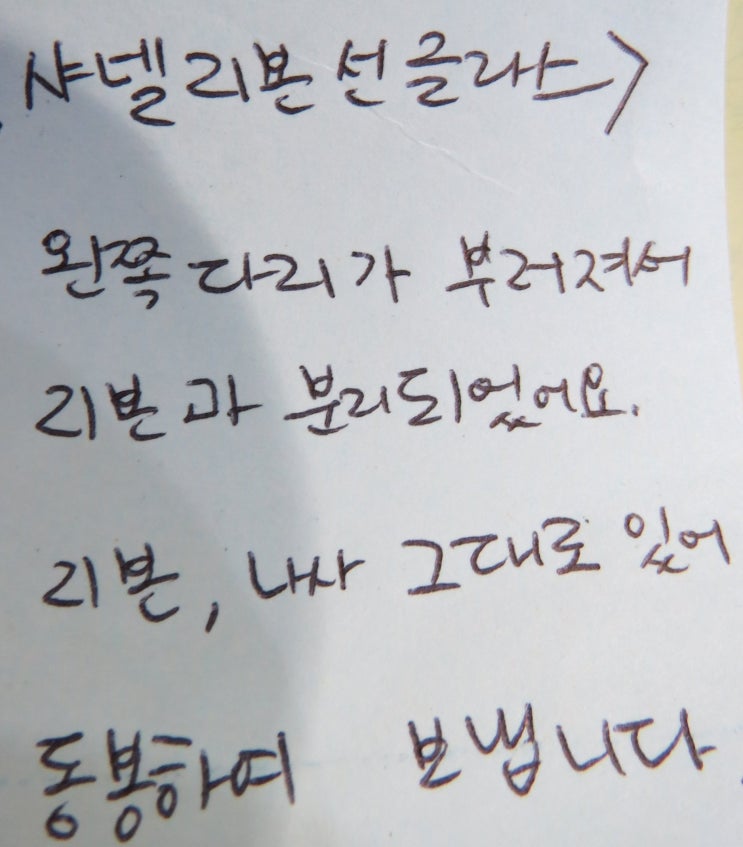 샤넬 리본 선글라스>
왼쪽 다리가 부러져서
리본과 분리되었어요.
리본, 나사 그대로 있어
동봉하여 보냅니다.